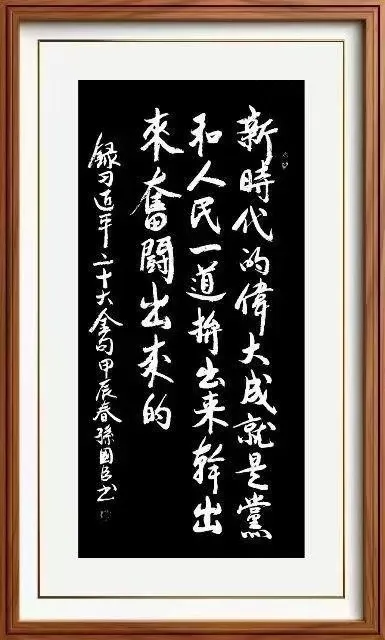 新時代的偉大成就是黨
和人民一道拚出來幹出
來奮鬪出来的
録习近平二十大金句甲辰春孫國臣书